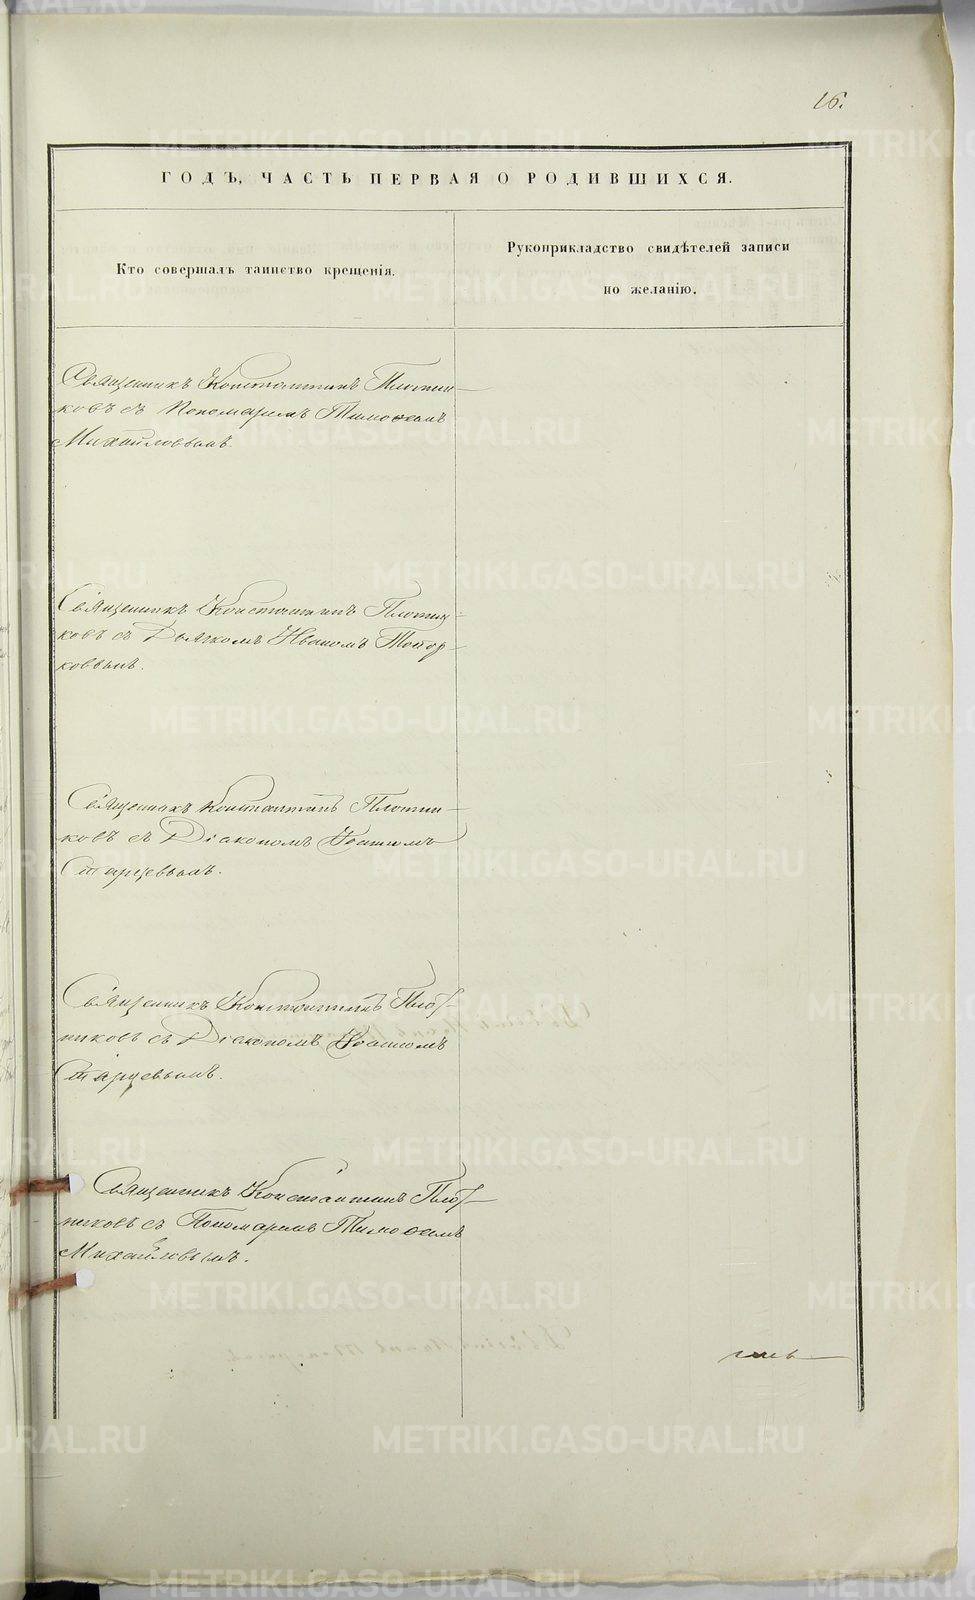 16.
ГОДЪ, ЧАСТЬ ПЕРВАЯ О РОДИВШИХСЯ.
Кто совершалъ таинство крещенія.
Рукоприкладство свидѣтелей записи
по желанію.
Священникъ Константинъ Плотни-
ковъ съ Пономаремъ Тимоѳеемъ
Михайловымъ.
Священникъ Константинъ Плотни-
ковъ съ Дьячкомъ Иваномъ Топор-
ковымъ.
Священникъ Константинъ Плотни-
ковъ съ Діакономъ Іоанномъ
Старцевымъ.
Священникъ Константинъ Плот-
никовъ съ Діакономъ Іоанномъ
Старцевымъ.
Священникъ Константинъ Плот-
никовъ съ Пономаремъ Тимоѳеемъ
Михайловымъ.
METRIKI.GASO-URAL.RU